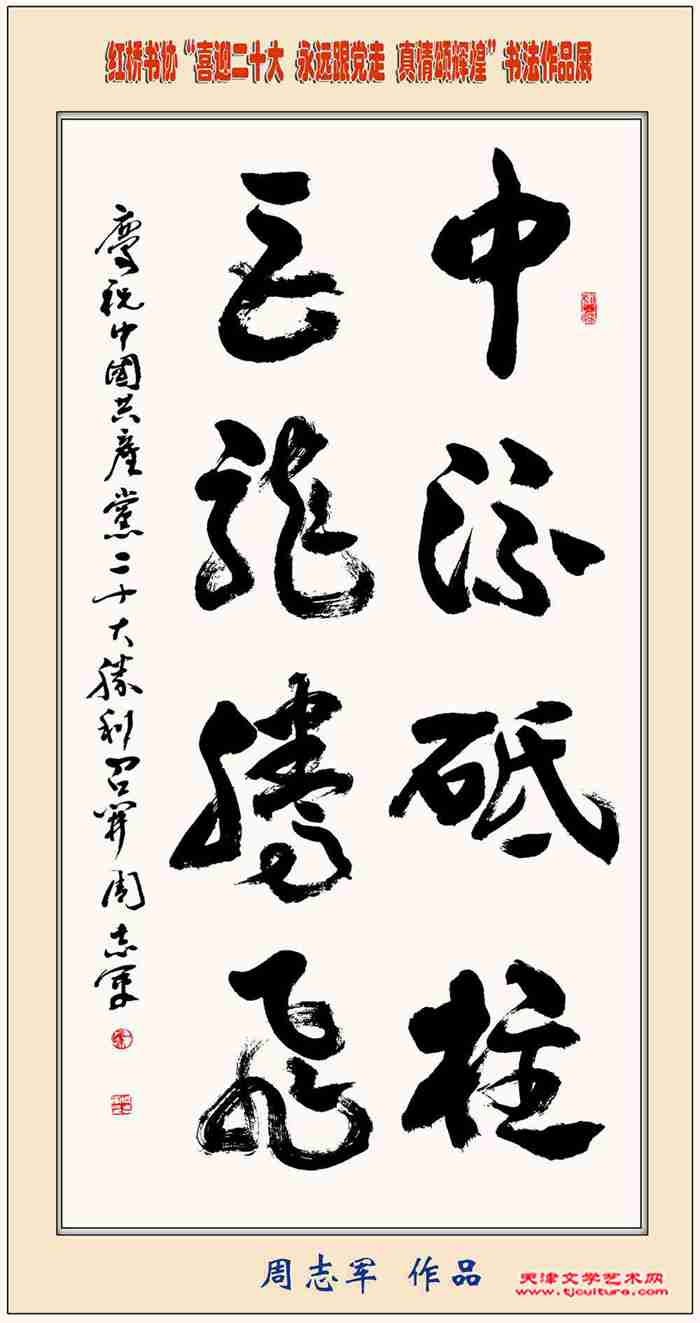 红桥书协“喜迎二十大 永远跟党走 真情颂辉煌”书法作品展
中流砥柱
巨龙腾飞
慶祝中國共產黨二十大勝利召開 周志军
周志军 作品
天津文学艺术网
www.tjculture.com